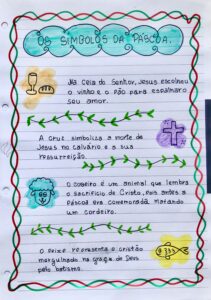 OS SIMBOLOS DA PÁSCOA.
Na Ceia do Senhor, Jesus escolheu
o vinho e o pão para espalhar o
seu amor.
A Cruz simboliza a morte de
Jesus no calvário e a sua
ressurreição.
O cordeiro é um animal que lembra
o sacrifício de Cristo, pois antes a
Páscoa era comemorada matando
um cordeiro.
O peixe representa o cristão
mergulhado na graça de Deus
pelo batismo.